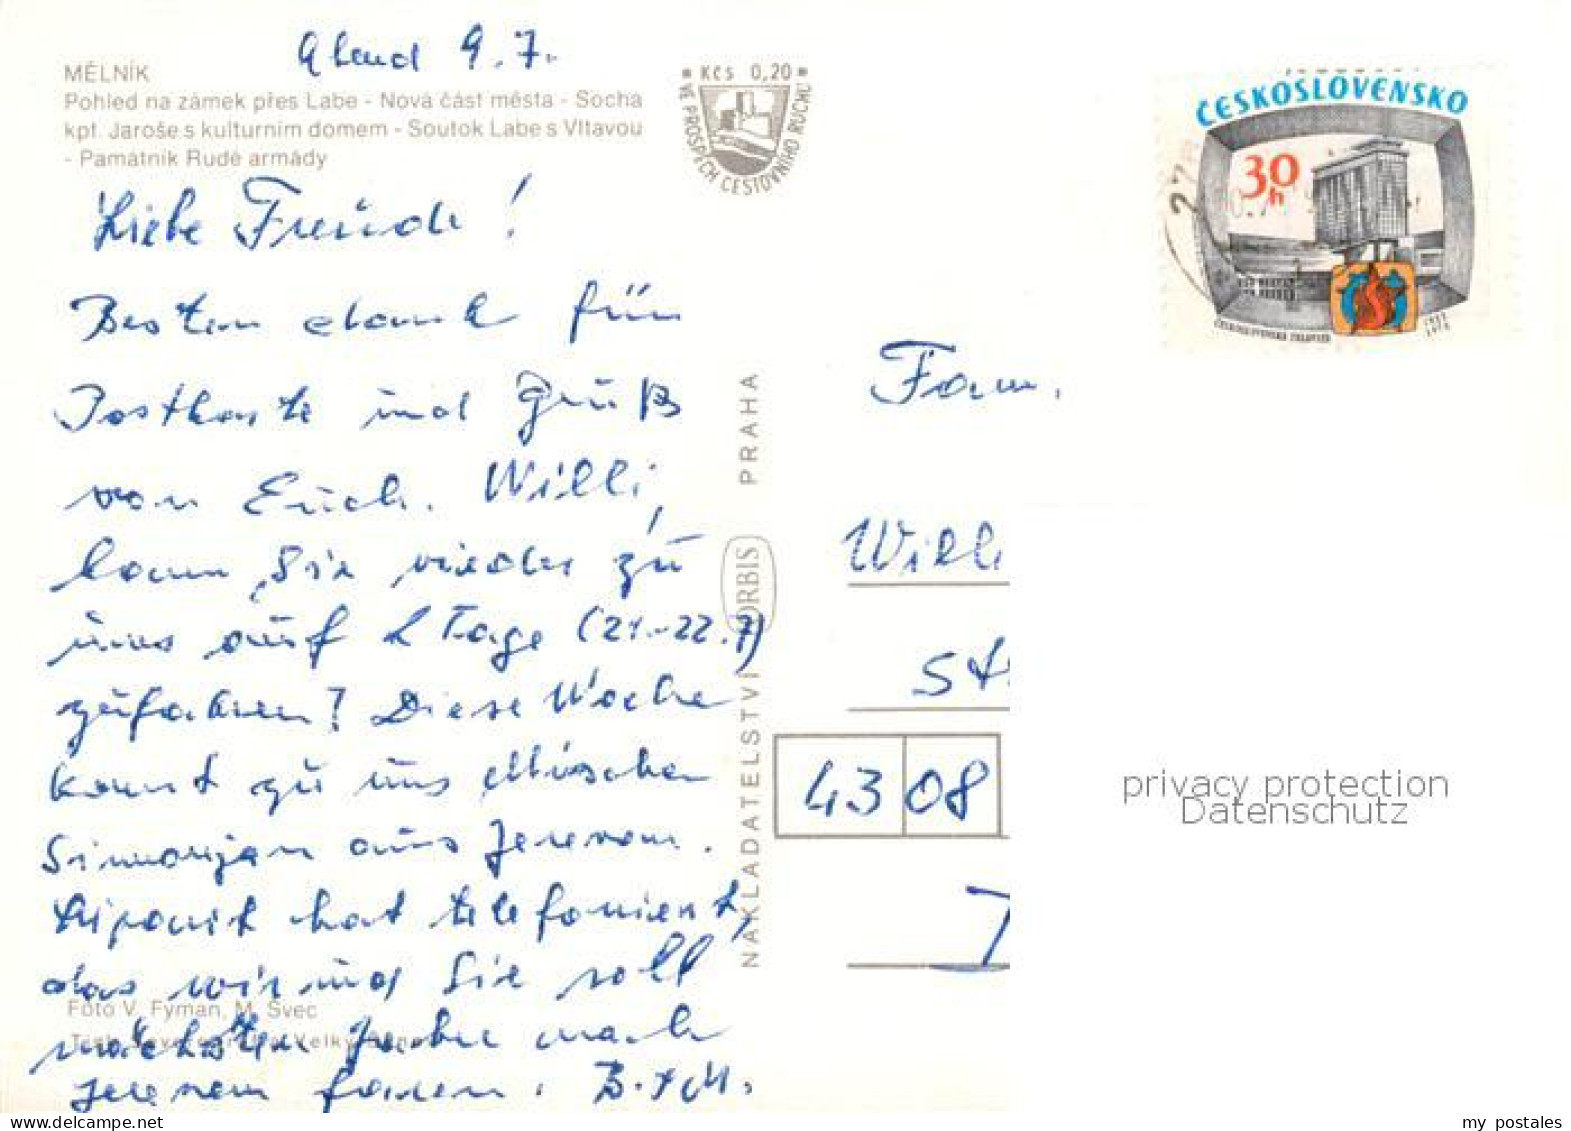 Abend 9.7.
MĚLNÍK
Pohled na zámek přes Labe - Nová část města - Socha
kpt. Jaroše s kulturním domem - Soutok Labe s Vltavou
- Památník Rudé armády
Kčs 0,20
VE PROSPĚCH CESTOVNÍHO RUCHU
ČESKOSLOVENSKO
30h
ČESKOSLOVENSKÁ TELEVIZE
Liebe Freunde!
Besten dank für
Postkarte und Gruß
von Euch. Willi,
kann Sie wieder zu
uns auf 2 Tage (21.-22.7)
zufahren? Diese Woche
komt zu uns Mischa
Simonjan aus Jerewan.
hat telefoniert,
das wir und Sie soll
nächsten Jahr nach
Jerewan fahren. B.+M.
Foto V. Fyman, M. Švec
NAKLADATELSTVÍ ORBIS PRAHA
Fam.
Willi
St
43 08
privacy protection
Datenschutz
my_postales